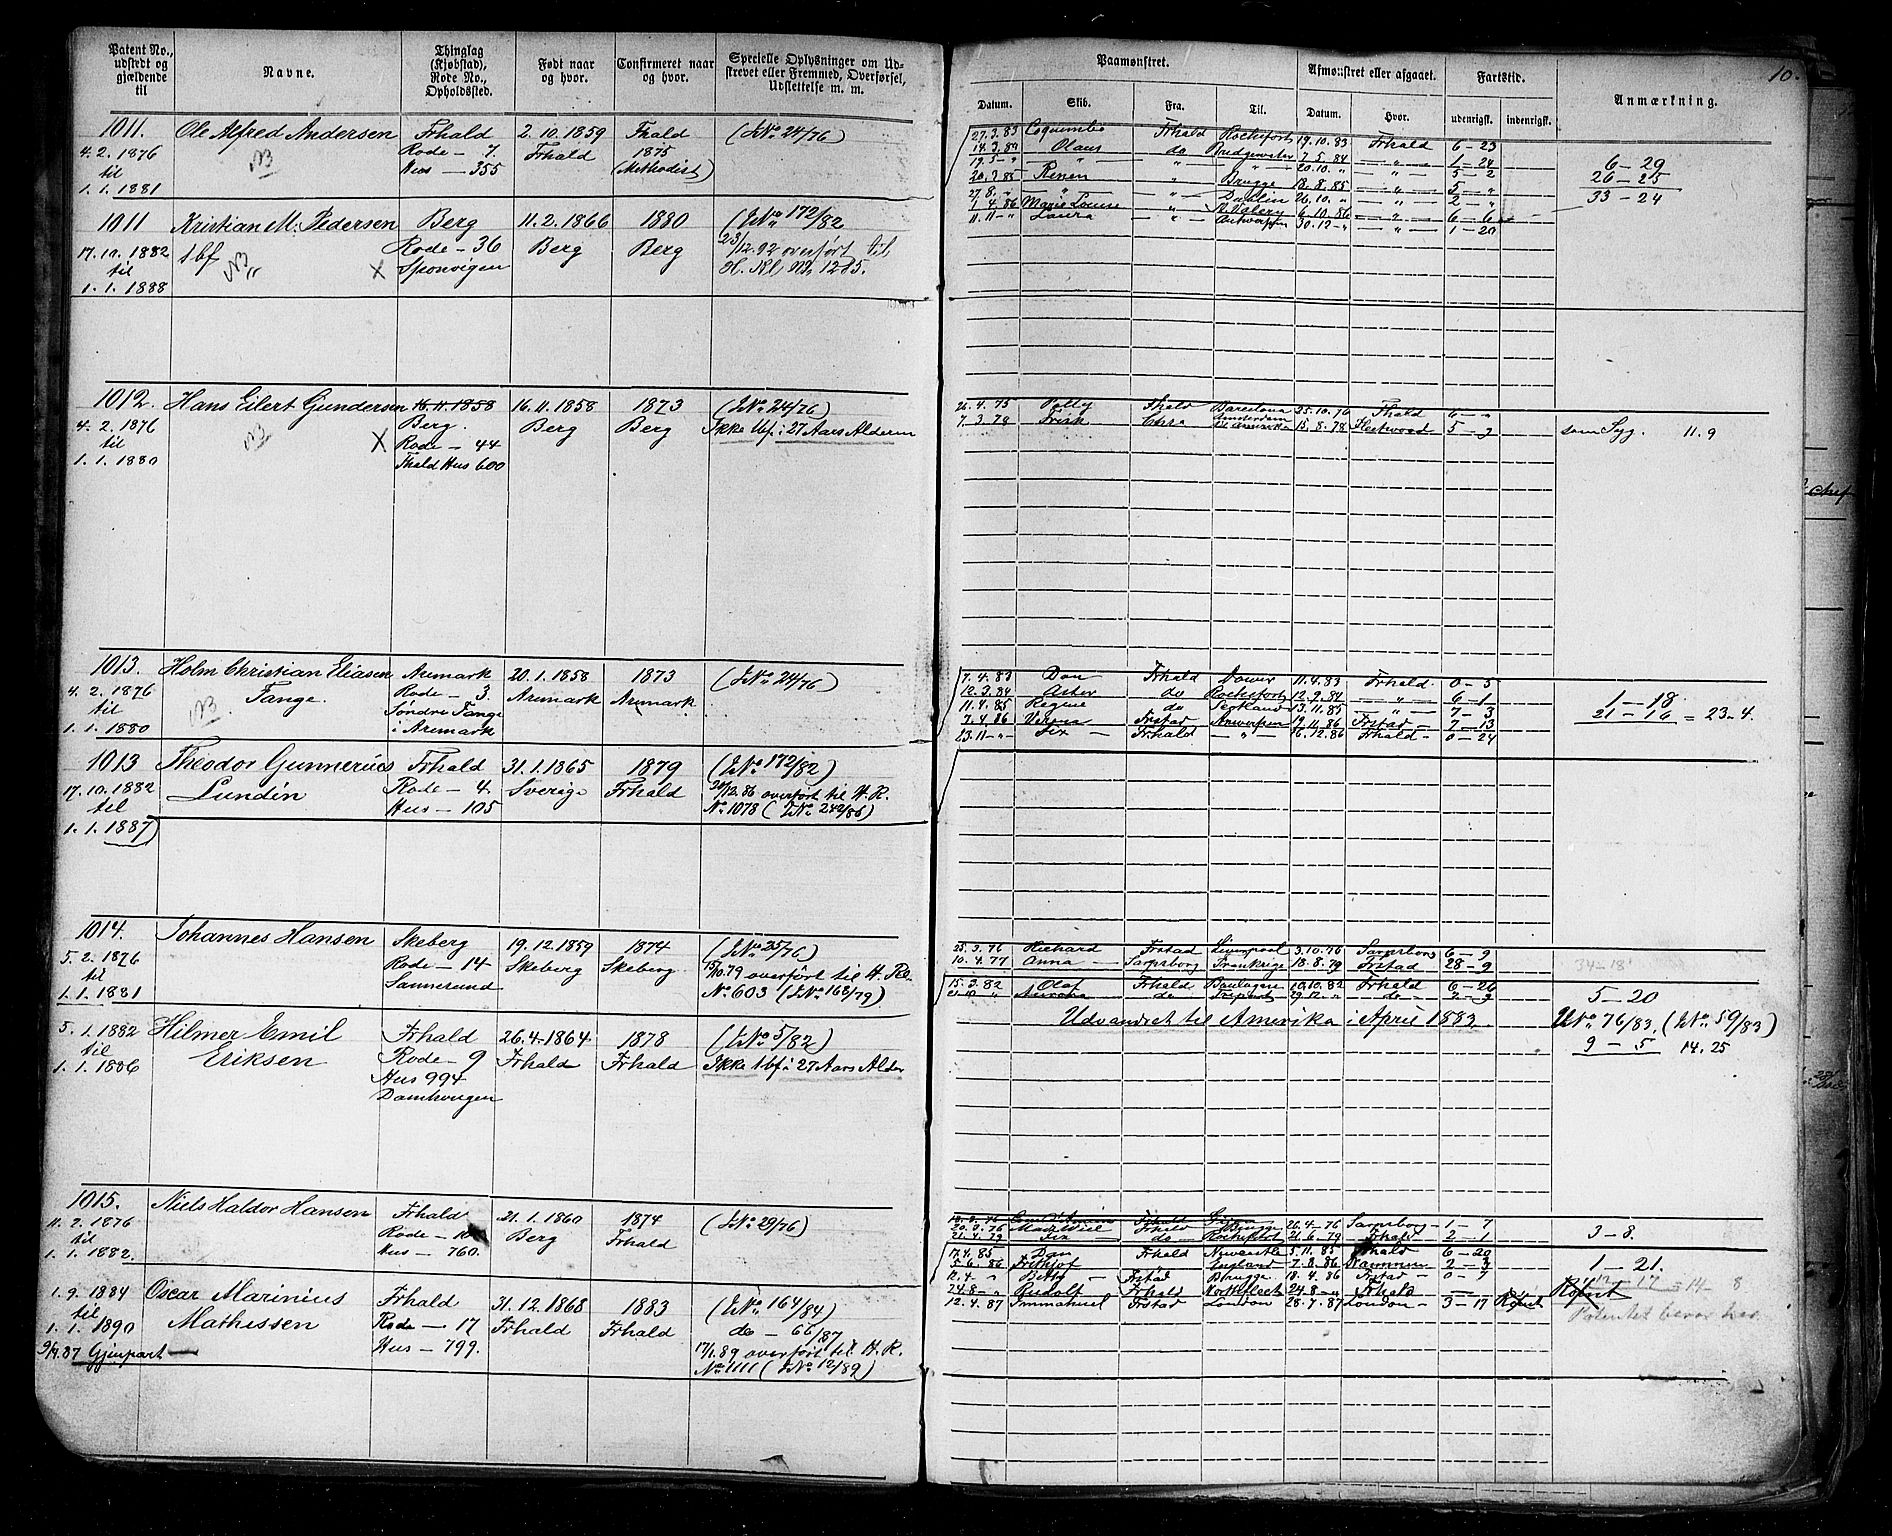 Patent No., udstedt og gjældende til
Navne.
Thinglag (Kjøbstad), Rode No., Opholdssted.
Født naar og hvor.
Confirmeret naar og hvor.
Specielle Oplysninger om Udstrevet eller Fremmed, Overførsel, Udslettelse m. m.
Paamønstret.
Datum.
Skib.
Fra.
Til.
Afmønstret eller afgaaet.
Datum.
Hvor.
Fartstid.
udenrigsk.
indenrigsk.
Anmærkning.
10.
1011. Ole Alfred Andersen Frhald 2.10.1859 Fhald (J.No. 24/76)
4.2.1876 Rode - 7 Frhald 1875
til Hus - 355 (Methodist)
1.1.1881
27.3.83 Coquimbo Frhald Rochefort 19.10.83 Frhald 6-23
14.3.84 Olaus do Bridgewater 7.5.84 1-24
19.5 - " " " 20.10. " 5-2
20.3.85 " Brügge 18.8.85 5 - "
27.8. " " 26.10. " 2 - "
1.4.86 Marie Louise " 6.10.86 6-6
11.11 - " Laura " Antwerpen 30.12 - " 1-20
6-29
26-25
33-24
1011 Kristian M. Pedersen Berg 11.2.1866 1880 (J.No. 172/82
17.10.1882 1bf Rode - 36 Berg Berg 23/12.92 overført til
til X Sponvigen H. Rl No. 1285.
1.1.1888
1012. Hans Eilert Gundersen 16.11.1858 16.11.1858 1873 (J.No. 24/76)
4.2.1876 Berg. Berg Berg Ikke 1bf. i 27 Aars Alderen
til X Rode - 44
1.1.1880 Fhald Hus 600
26.4.75 Polly Fhald Barcelona 25.10.76 Fhald 6 - "
7.3.78 Frisk Chra Amsterdam 15.8.78 Fleetwood 5-9 som Syg. 11.9
1013. Holm Christian Eliasen Aremark 20.1.1858 1873 (J.No. 24/76)
4.2.1876 Tange. Rode - 3. Aremark Aremark
til Søndre Tange
1.1.1880 i Aremark
7.4.83 Don Frhald Dover 11.4.83 Frhald. 0-5
12.3.84 Aster do Rochefort 12.9.84 - " - 6-1
11.4.85 Regine do 13.11.85 - " - 7-3
7.4.86 Frstad Antwerpen 19.11.86 Frstad - 7-13
23.11 - " - Six - Frhald - " - 16.12.86 Frhald - 0-24
1-18
21-16 = 23-4.
1013 Theodor Gunnerius Frhald 31.1.1865 1879 (J.No. 172/82)
17.10.1882 Lundin Rode - 4. Sverige Frhald overført til H.R.
til Hus - 105 No. 1078 (J.No. 242/86)
1.1.1887)
1014. Johannes Hansen Skeberg 19.12.1859 1874 (J.No. 25/76)
5.2.1876 Rode - 14 Skeberg Skeberg 15/10.79 overført til H. Rl.
til Sannesund No. 603 (J.No. 168/79)
1.1.1881
25.3.76 Richard Frstad Liverpool 3.10.76 Sarpsborg 6-9
10.4.77 Anna - Sarpsborg Frankrige 18.8.79 Frstad 28-9
34-18
15.3.82 Olaf Frhald 10.10.82 Frhald 6-26
Aurora do 29.12. - " do -
5-20
5.1.1882 Hilmer Emil Frhald 26.4.1864 1878 (J.No. 5/82)
til Eriksen Rode - 9 Frhald Frhald Ikke 1bf i 27 Aars Alder
1.1.1886 Hus 994
Damhougen
Udvandret til Amerika i April 1883. U.No. 76/83. (J.No. 59/83)
9-5 14.25
1015. Niels Haldor Hansen Frhald 21.1.1860 1874 (J.No. 29/76)
11.2.1876 Rode - 10 Berg Frhald
til Hus - 760.
1.1.1882.
20.3.76 Frhald Brügge 26.4-76 Sarpsborg - 1-7
21.4.79 Six do 21.6.79 Frhald - 2-1
3-8.
1.9.1884 Oscar Marinius Frhald 31.12.1868 1883 (J.No. 164/84)
til Mathissen Rode - 17 Frhald Frhald do - 66/87
1.1.1890 Hus - 799. 17/1.89 overført til H.R.
9/9.87 Gjenpart No. 1111 (J.No. 12/89)
17.4.85 Dan Frhald Newcastle 5.11.85 Fhald 6-20
5.6.86 Frithjof England 7.8.86 Drammen 2-3
12.4 - " Betty - Frstad Brügge 18.4.86 Frstad - 0-7
24.8 - " Rudolf Frhald 24.8 - " Frhald -
12.4.87 Immanuel Frstad London 28.7.87 London - 3-17 Rømt
1-21.
12-17 = 14-8
Rømt
Patentet beror her.